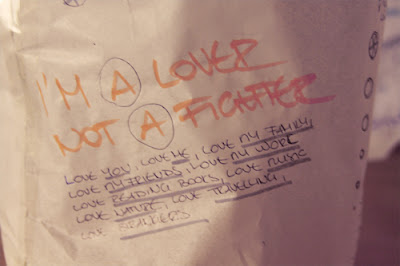 I'M A LOVER
NOT A FIGHTER
LOVE YOU, LOVE ME, LOVE MY FAMILY,
LOVE MY FRIENDS, LOVE MY WORK
LOVE READING BOOKS, LOVE MUSIC
LOVE NATURE, LOVE TRAVELLING,
LOVE